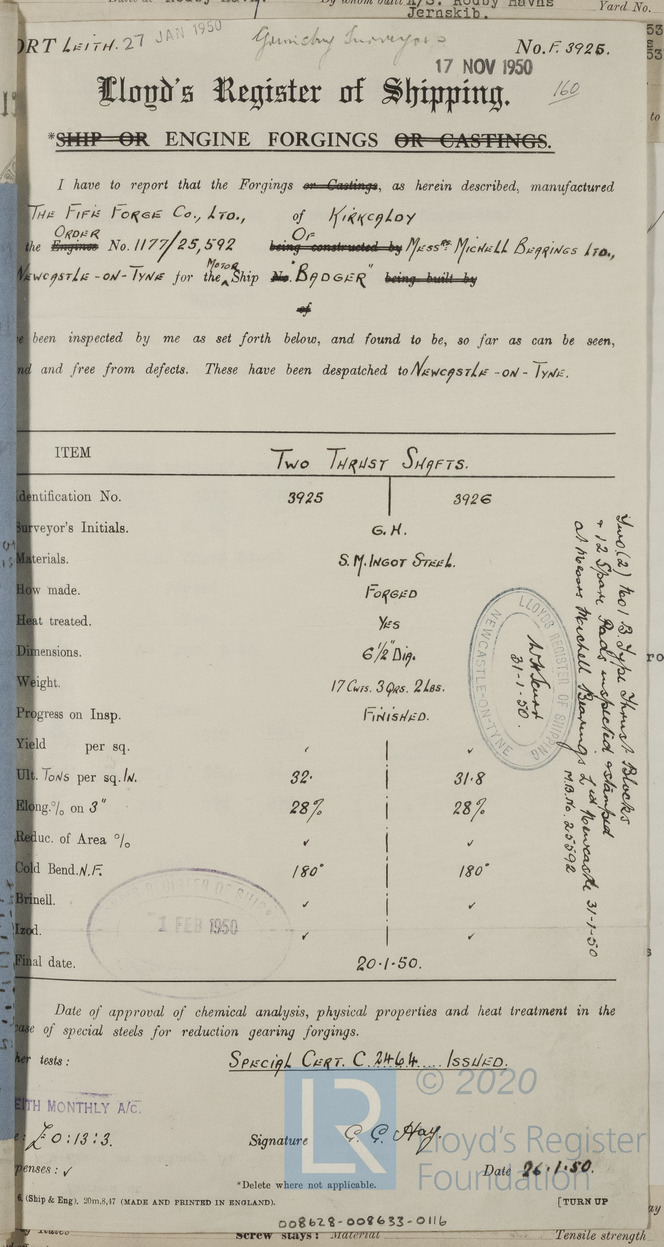 By whom built
Rödby Havns
Yard No.
Jernskib.
ORT LEITH. 27 JAN 1950
Surveyors
No. F. 3925.
17 NOV 1950
160
Lloyd's Register of Shipping.
*SHIP OR ENGINE FORGINGS OR CASTINGS.
I have to report that the Forgings or Castings, as herein described, manufactured
THE FIFE FORGE CO., LTD., of KIRKCALDY
ORDER OF
the Engines No. 1177/25,592 being constructed by MESSRS. MICHELL BEARINGS LTD.,
MOTOR
NEWCASTLE-ON-TYNE for the Ship No. "BADGER" being built by
of
e been inspected by me as set forth below, and found to be, so far as can be seen,
nd and free from defects. These have been despatched to NEWCASTLE-ON-TYNE.
ITEM TWO THRUST SHAFTS.
dentification No. 3925 3926
Surveyor's Initials. G.H.
Materials. S.M. INGOT STEEL.
How made. FORGED
Heat treated. YES
Dimensions. 6 1/2" DIA.
Weight. 17 CWTS. 3 QRS. 2 LBS.
Progress on Insp. FINISHED.
Yield per sq. ✓ ✓
Ult. TONS per sq. IN. 32. 31.8
Elong. % on 3" 28% 28%
Reduc. of Area % ✓ ✓
Cold Bend. N.F. 180° 180°
Brinell. ✓ ✓
Izod. ✓ ✓
Final date. 20.1.50.
Two (2) No 1 B. Type Thrust Blocks
& 12 Spare Pads inspected & stamped
at Messrs Michell Bearings Ltd Newcastle 31-1-50
M.B. No. 25592
LLOYDS REGISTER OF SHIPPING
NEWCASTLE-ON-TYNE
31-1-50.
1 FEB 1950
Date of approval of chemical analysis, physical properties and heat treatment in the
ase of special steels for reduction gearing forgings.
her tests: SPECIAL CERT. C.2464.....ISSUED.
EITH MONTHLY A/C.
e: £0:13:3. Signature G. G. Hay.
penses: ✓ Date 26.1.50.
*Delete where not applicable.
6. (Ship & Eng). 20m,8,47 (MADE AND PRINTED IN ENGLAND). [TURN UP
LR © 2020
Lloyd's Register
Foundation
008628-008633-0116
Screw stays: Material Tensile strength